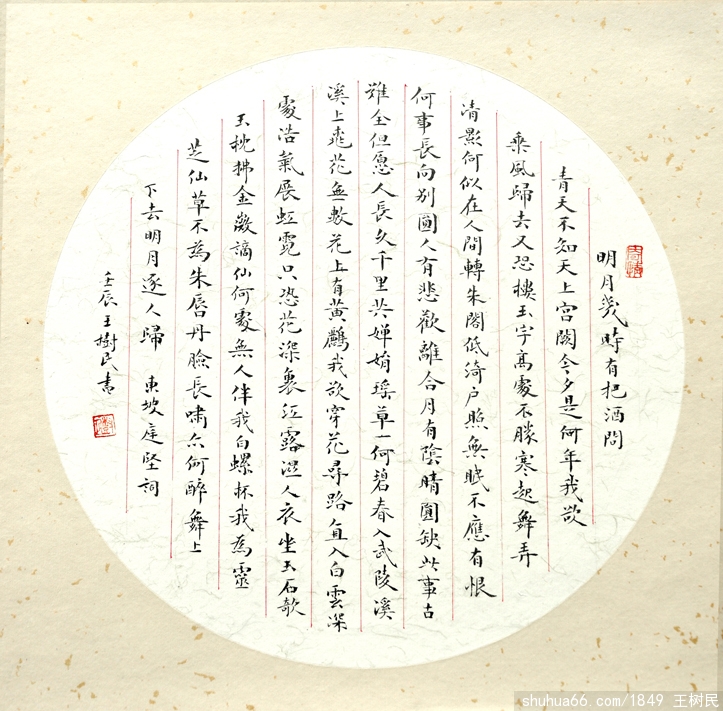 明月幾時有把酒問
青天不知天上宫闕今夕是何年我欲
乘風歸去又恐樓玉宇高處不勝寒起舞弄
清影何似在人間轉朱閣低綺户照無眠不應有恨
何事長向别圓人有悲歡離合月有陰晴圓缺此事古
難全但愿人長久千里共嬋娟瑶草一何碧春入武陵溪
溪上桃花無數花上有黄鸝我欲穿花尋路直入白雲深
處浩氣展虹霓只恐花深裏紅露濕人衣坐玉石欹
玉枕拂金徽謫仙何處無人伴我白螺杯我為靈
芝仙草不為朱唇丹臉長嘯亦何醉舞上
下去明月逐人歸 東坡庭堅詞
壬辰王樹民書
shuhua66.com/1849 王树民